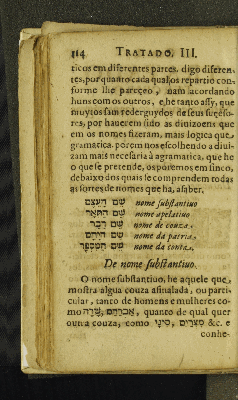 114 TRATADO. III.
ticus em diferentes partes. digo diferen-
tes, por quanto cada qual os repartio con-
forme lhe pareçeo, nam acordando
huns com os outros, e he tanto assy, que
muytos sam rederguydos de seus suçeso-
res, por hauerem sido as diuizoens que
em os nomes fizeram, mais logica que
gramatica. porem nos escolhendo a diui-
zam mais necesaria à agramatica, que he
o que se pretende, os poremos em sinco,
debaixo dos quais se comprendem todas
as sortes de nomes que ha, a saber,
שם העצם nome substantiuo
שם התאר nome apelatiuo
שם דבר nome de couza.
שם היחס nome da patria.
שם המספר nome da conta.
De nome substantiuo.
O nome substantiuo, he aquele que,
mostra algua couza asinalada, ou parti-
cular, tanto de homens e mulheres co-
mo אברהם, שרה, quanto de qual quer
outra couza, como סיני, מצרים &c. e
conhe-